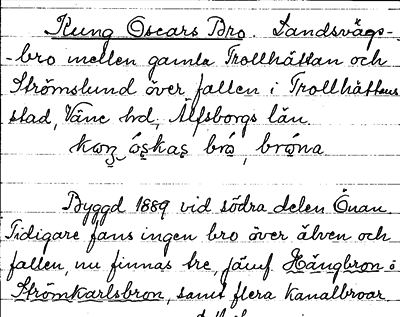 Kung Oscars Bro. Landsvägs-
-bro mellen gamla Trollhättan och
Strömslund över fallen i Trollhättans
stad, Väne hd, Älfsborgs län.
óskas bró, bróna
Byggd 1889 vid södra delen Önan.
Tidigare fans ingen bro över älven och
fallen, nu finnas tre, jämf Hängbron o
Strömkarlsbron, samt flera kanalbroar.